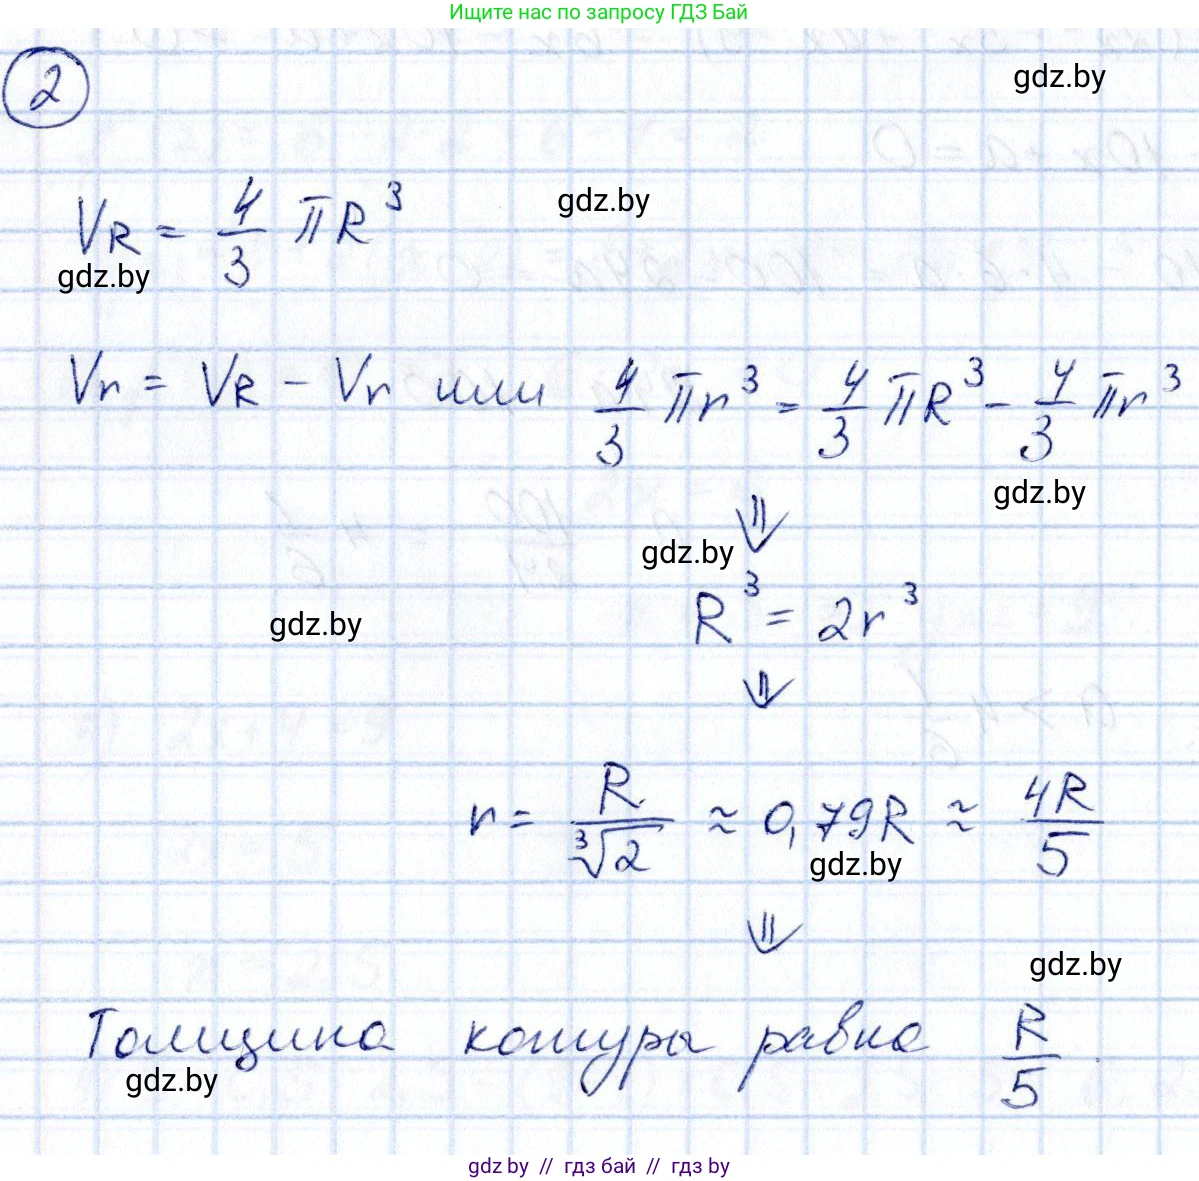 Ищите нас по запросу ГДЗ Бай
2
gdz.by
V_R = 4/3 πR³
gdz.by
gdz.by
Vr = V_R - Vr или 4/3 πr³ = 4/3 πR³ - 4/3 πr³
gdz.by
⇓
gdz.by
R³ = 2r³
gdz.by
⇓
r = R/∛2 ≈ 0,79R ≈ 4R/5
gdz.by
⇓
gdz.by
Толщина кожуры равна R/5.
gdz.by
gdz by // гдз бай // гдз by